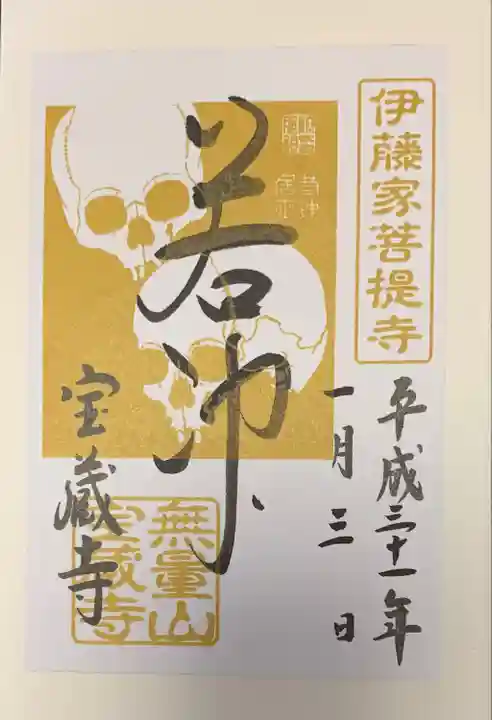 伊藤家菩提寺
平成三十一年
一月三日
若冲
宝蔵寺
無量山
宝蔵寺